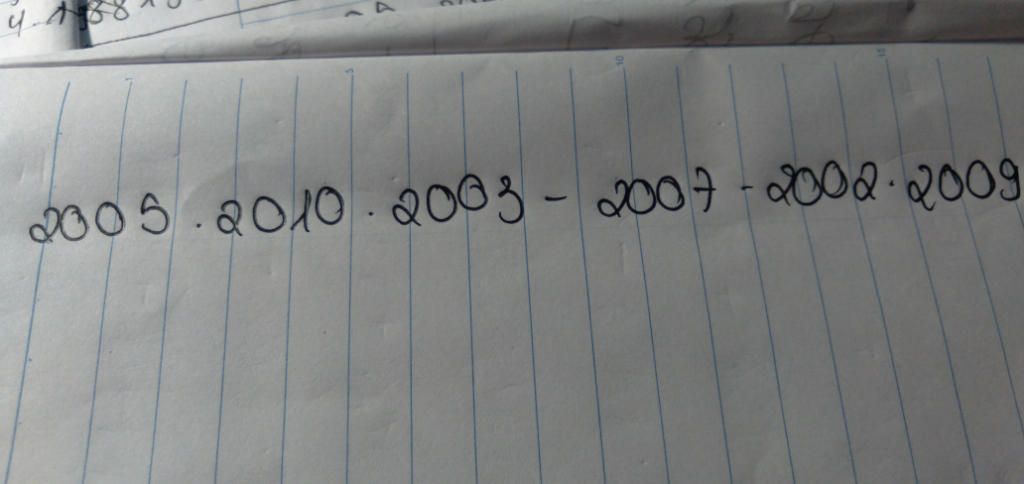 2005 . 2010 . 2003 - 2007 - 2002 . 2009